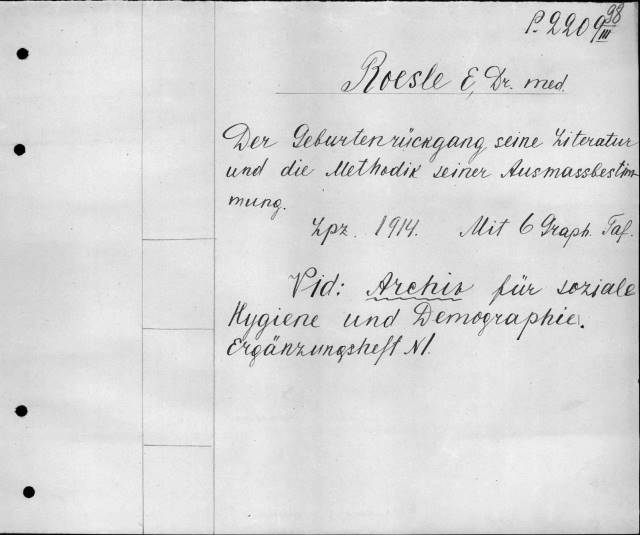 P. 2209 98/III
Roesle E, Dr. med.
Der Geburtenrückgang seine Literatur
und die Methodik seiner Ausmassbestim-
mung.
Lpz. 1914. Mit 6 Graph. Taf.
Vid: Archiv für soziale
Hygiene und Demographie.
Ergänzungsheft N1.